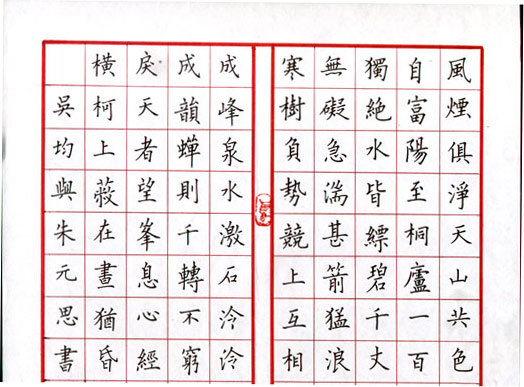 風煙俱淨天山共色
自富陽至桐廬一百
獨絕水皆縹碧千丈
無礙急湍甚箭猛浪
寒樹負勢競上互相
成峰泉水激石泠泠
成韻蟬則千轉不窮
戾天者望峯息心經
橫柯上蔽在晝猶昏
吳均與朱元思書